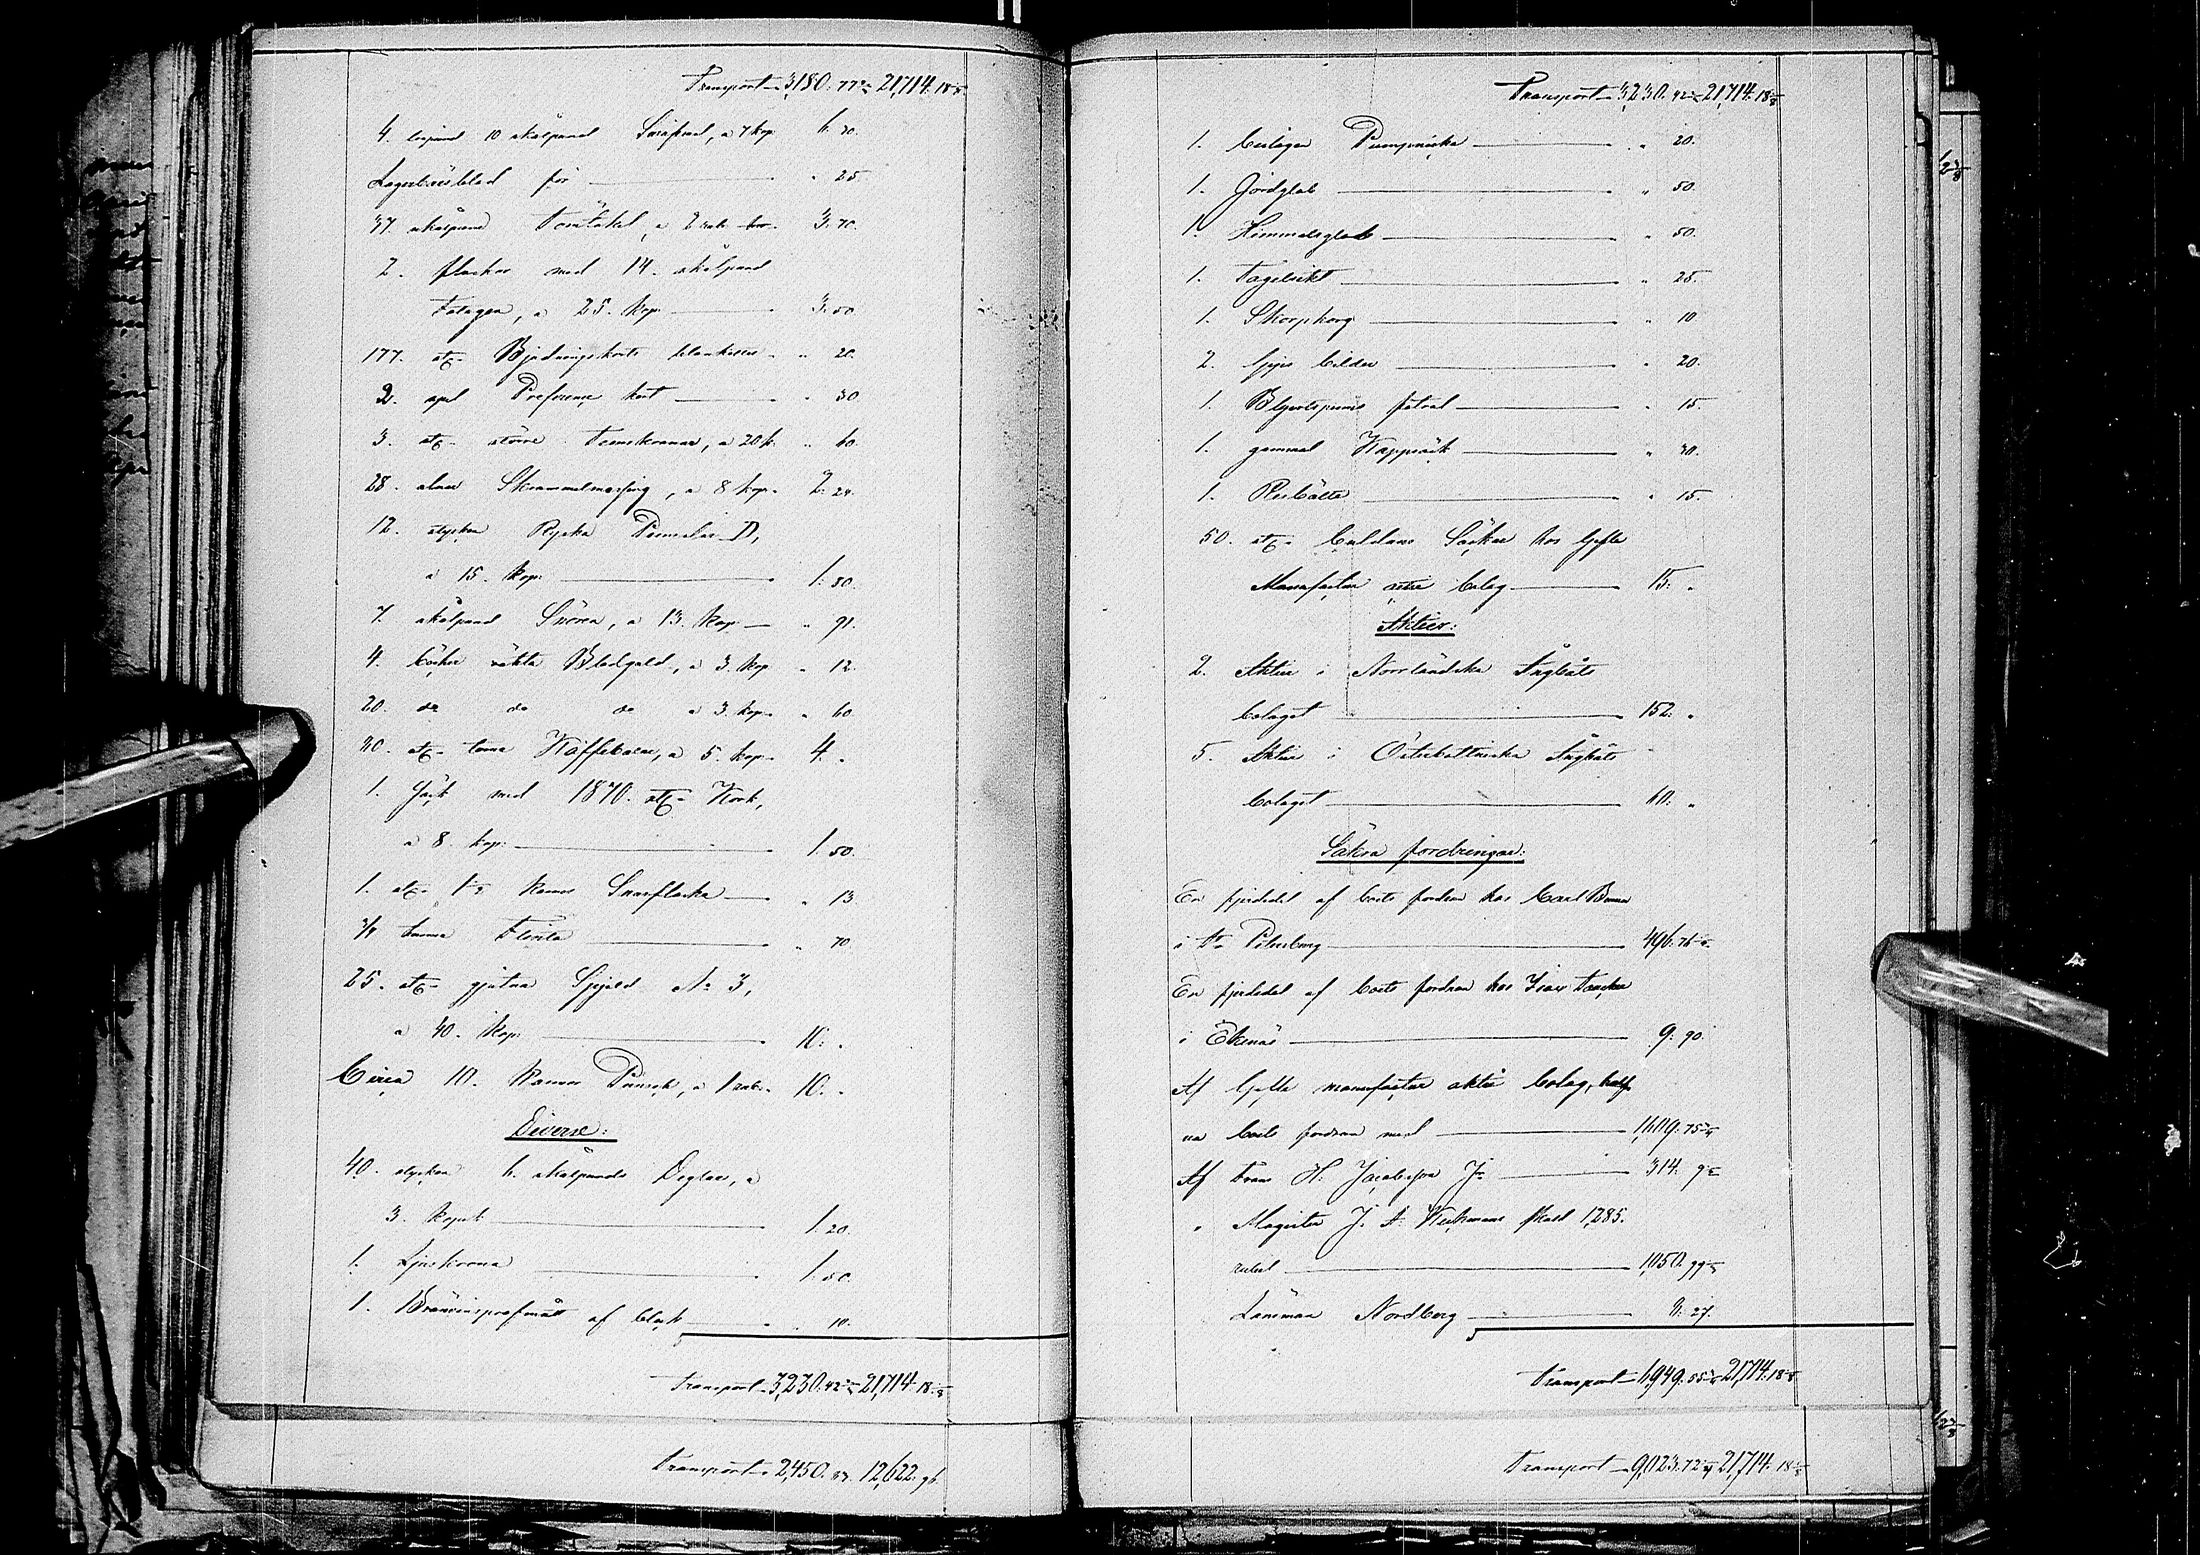 Transport 3,180. 77 21,714. 18
4. lispund 10 skålpund Småspad, a 7 kop. 6. 30
Lagerbärsblad för " 25
37. skålpund a 3. 70.
2. flaskor med 14. skålpund
a 25. kop. 3. 50
177. st. Bjudningskorts blanketter " 20.
2. spel Preference kort " 30
3. st. större a 20 k. " 60.
28. alnar Skrammelmessing, a 8 kop. 2. 24.
12. stycken Ryska D,
a 15. kop. 1. 80.
7. skålpund Snören, a 13. kop " 91.
4. böcker äkta Bladguld, a 3. kop " 12.
20. do do do a 3. kop. " 60
80. st. toma Kaffe a 5. kop. 4. "
1. Säck med 1870. st. Kork,
a 8 kop: 1. 50.
1. st. kannas flaska " 13
3/4 tunna " 70
25. st. gjutna Spjeld No 3,
a 40. kop. 10. "
Circa 10. kannor Punsch, a 1 rub. 10. "
Diverse:
40. stycken 6. skålpunds Deglar, a
3. kopek 1. 20.
1. Ljuskrona 1. 50.
1. Bränvinsprofmått af bleck " 10.
Transport 3,230. 42 21,714. 18
Transport 2,450. 12,622. 96
Transport 3,230. 42 21,714. 18
1. " 20.
1. Jordglob " 50.
1. Himmelsglob " 50.
1. Tagelsikt " 25.
1. Skorpkorg " 10
2. Gips bilder " 20.
1. Blyertspenns fodral " 15.
1. gammal Kappsäck " 30.
1. Resbälte " 15.
50. st. Buldans Säckar hos Gefle
Manufactur actie bolag 15. "
Aktier:
2. Aktier i Norrländska Ångbåts
bolaget 152. "
5. Aktier i Österbottniska Ångbåts
bolaget 60. "
Säkra fordringar:
En fjerdedel af boets fordran hos Carl
i St. Petersburg 496. 76
En fjerdedel af boets fordran hos
i Ekenäs 9. 90.
Af Gefle manufactur aktie bolag, half
va boets fordran med 1,609. 75
Af Frans H. Jacobsson Jr 314. 9
" Magister J. A. skuld 1,285.
rubel 1,050. 99
Länsman Nordberg 8. 27.
Transport 6,949. 55 21,714. 18
Transport 9,023. 72 21,714. 18